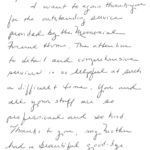 I want to again thank you
for the outstanding service
provided by the Memorial
Funeral Home. The attention
to detail and compassionate
services is so helpful at such
a difficult time. You and
all your staff are so
professional and so kind.
Thanks to you, my Mother
had a beautiful good-bye.